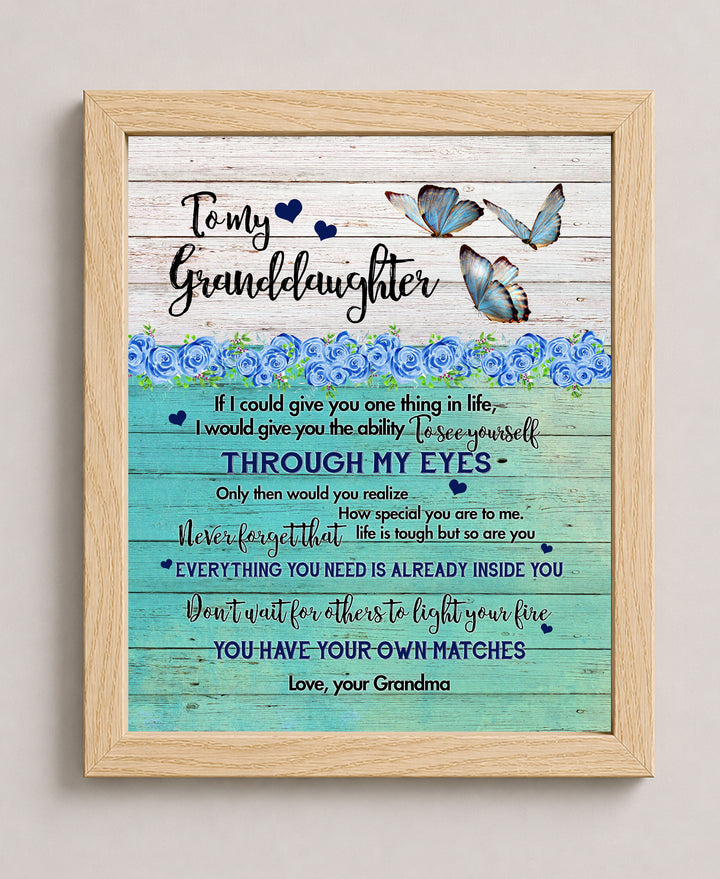 To my
Granddaughter
If I could give you one thing in life,
I would give you the ability To see yourself
THROUGH MY EYES
Only then would you realize
How special you are to me.
Never forget that life is tough but so are you
EVERYTHING YOU NEED IS ALREADY INSIDE YOU
Don't wait for others to light your fire
YOU HAVE YOUR OWN MATCHES
Love, your Grandma